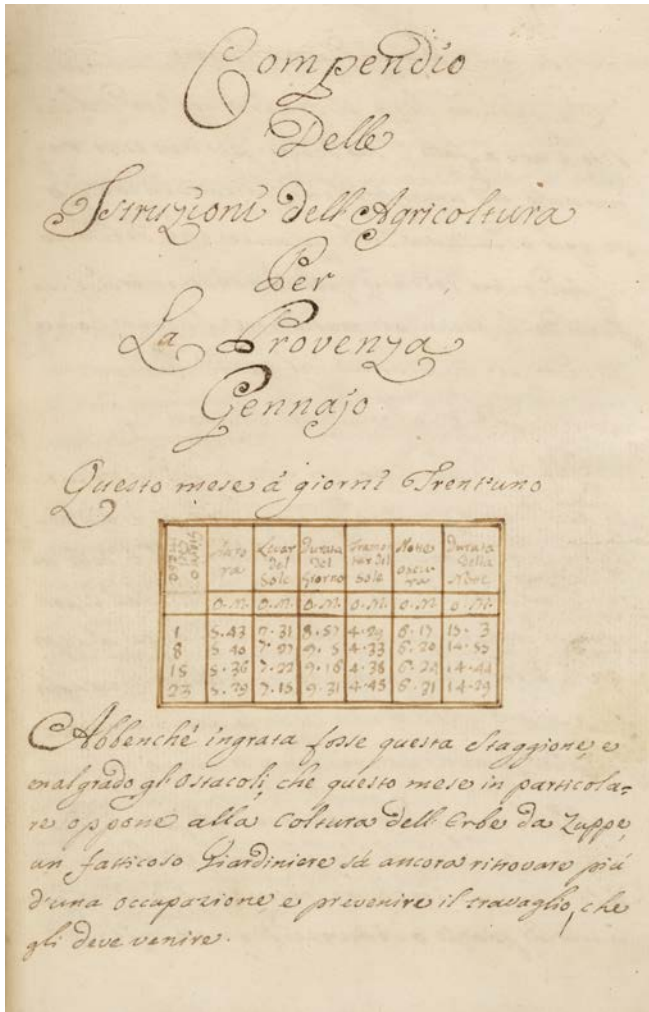 Compendio
Delle
Istruzioni dell'Agricoltura
Per
La Provenza
Gennajo
Questo mese à giorni Trent'uno
Giorno Del Mese | Auro ra | Levar Del Sole | Durata Del Giorno | Tramo ntar del Sole | Notte oscu ra | Durata Della Notte
o. m. | o. m. | o. m. | o. m. | o. m. | o. m.
1 | 5. 43 | 7. 31 | 8. 57 | 4. 29 | 6. 17 | 15. 3
8 | 5. 40 | 7. 27 | 9. 5 | 4. 33 | 6. 20 | 14. 55
15 | 5. 36 | 7. 22 | 9. 16 | 4. 38 | 6. 24 | 14. 44
23 | 5. 29 | 7. 15 | 9. 31 | 4. 45 | 6. 31 | 14. 29
Abbenché ingrata fosse questa Staggione, e
malgrado gl'Ostacoli, che questo mese in particola=
re oppone alla Coltura dell'Erbe da Zuppe,
un fatticoso Giardiniere sà ancora ritrovare più
d'una occupazione, e prevenire il travaglio, che
gli deve venire.